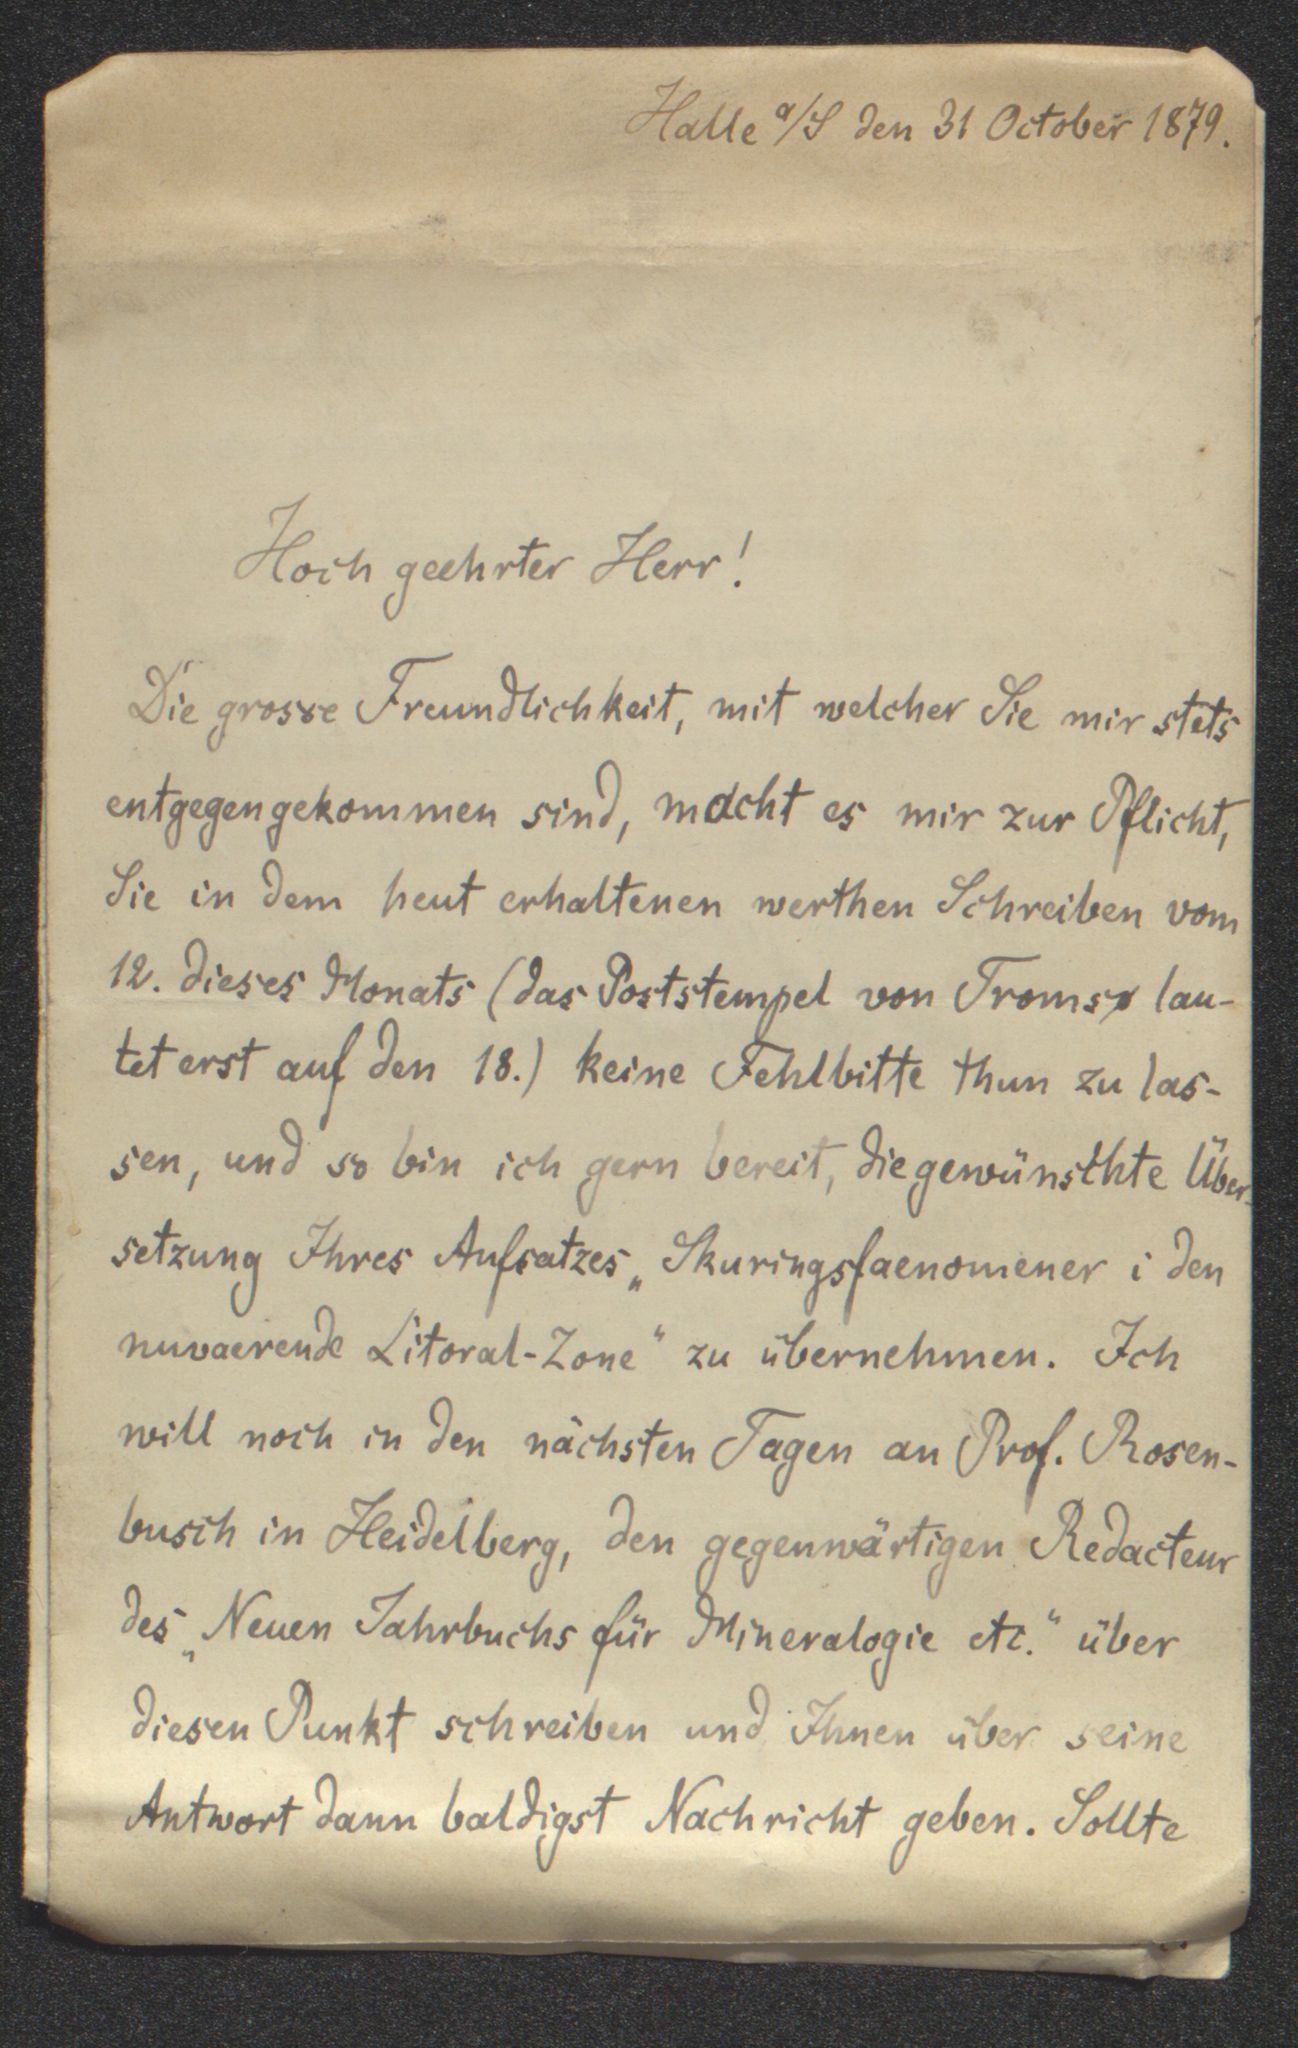 Halle a/S den 31 October 1879.
Hoch geehrter Herr!
Die grosse Freundlichkeit, mit welcher Sie mir stets
entgegengekommen sind, macht es mir zur Pflicht,
Sie in dem heut erhaltenen werthen Schreiben vom
12. dieses Monats (das Poststempel von Tromsø lau-
tet erst auf den 18.) keine Fehlbitte thun zu las-
sen, und so bin ich gern bereit, die gewünschte Über-
setzung Ihres Aufsatzes „Skuringsfaenomener i den
nuvaerende Litoral-Zone“ zu übernehmen. Ich
will noch in den nächsten Tagen an Prof. Rosen-
busch in Heidelberg, den gegenwärtigen Redacteur
des „Neuen Jahrbuchs für Mineralogie etc.“ über
diesen Punkt schreiben und Ihnen über seine
Antwort dann baldigst Nachricht geben. Sollte